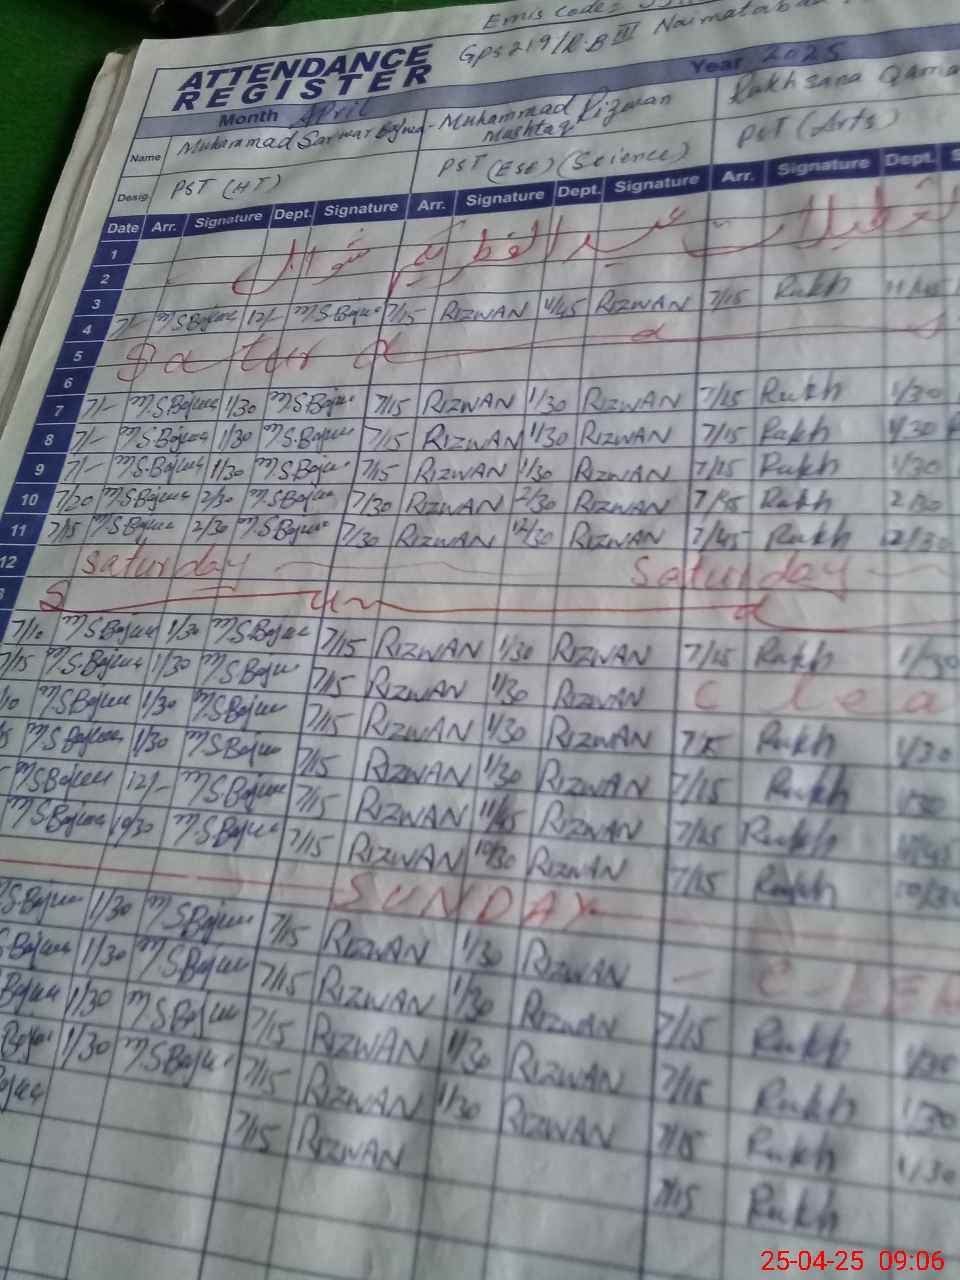 Emis Code:
ATTENDANCE REGISTER
GPS 219/R.B III Naimatabad
Month April Year 2025
Name Muhammad Sarwar Bajwa Muhammad Rizwan Mushtaq Rukhsana
Desig. PST (HT) PST (ESE) (Science) PST (Arts)
Date Arr. Signature Dept. Signature Arr. Signature Dept. Signature Arr. Signature Dept.
1
2 عید الفطر
3
4 7/- M.S.Bajwa 12/- M.S.Bajwa 7/15 RIZWAN 11/45 RIZWAN 7/15 Rukh 11/45
5 Saturd
6
7 7/- M.S.Bajwa 1/30 M.S.Bajwa 7/15 RIZWAN 1/30 RIZWAN 7/15 Rukh 1/30
8 7/- M.S.Bajwa 1/30 M.S.Bajwa 7/15 RIZWAN 1/30 RIZWAN 7/15 Rukh 1/30
9 7/- M.S.Bajwa 1/30 M.S.Bajwa 7/15 RIZWAN 1/30 RIZWAN 7/15 Rukh 1/30
10 7/20 M.S.Bajwa 2/30 M.S.Bajwa 7/30 RIZWAN 2/30 RIZWAN 7/45 Rukh 2/30
11 7/15 M.S.Bajwa 2/30 M.S.Bajwa 7/30 RIZWAN 12/30 RIZWAN 7/45 Rukh 12/30
12 Saturday Saturday
Sun d
7/10 M.S.Bajwa 1/30 M.S.Bajwa 7/15 RIZWAN 1/30 RIZWAN 7/15 Rukh 1/30
7/15 M.S.Bajwa 1/30 M.S.Bajwa 7/15 RIZWAN 1/30 RIZWAN C l e a
/10 M.S.Bajwa 1/30 M.S.Bajwa 7/15 RIZWAN 1/30 RIZWAN 7/15 Rukh 1/30
M.S.Bajwa 1/30 M.S.Bajwa 7/15 RIZWAN 1/30 RIZWAN 7/15 Rukh 1/30
M.S.Bajwa 12/- M.S.Bajwa 7/15 RIZWAN 11/45 RIZWAN 7/15 Rukh
M.S.Bajwa 10/30 M.S.Bajwa 7/15 RIZWAN 10/30 RIZWAN 7/15 Rukh 10/30
SUNDAY
M.S.Bajwa 1/30 M.S.Bajwa 7/15 RIZWAN 1/30 RIZWAN
S.Bajwa 1/30 M.S.Bajwa 7/15 RIZWAN 1/30 RIZWAN 7/15 Rukh 1/30
Bajwa 1/30 M.S.Bajwa 7/15 RIZWAN 1/30 RIZWAN 7/15 Rukh 1/30
Bajwa 1/30 M.S.Bajwa 7/15 RIZWAN 1/30 RIZWAN 7/15 Rukh 1/30
Bajwa 7/15 RIZWAN 7/15 Rukh
25-04-25 09:06